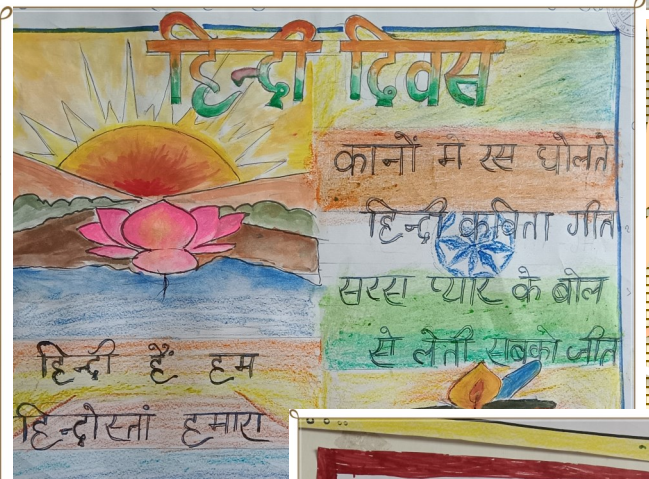 हिन्दी दिवस
कानों मे रस घोलते
हिन्दी कबिता गीत
सरस प्यार के बोल
से लेती सबको जीत
हिन्दी हैं हम
हिन्दोस्तां हमारा